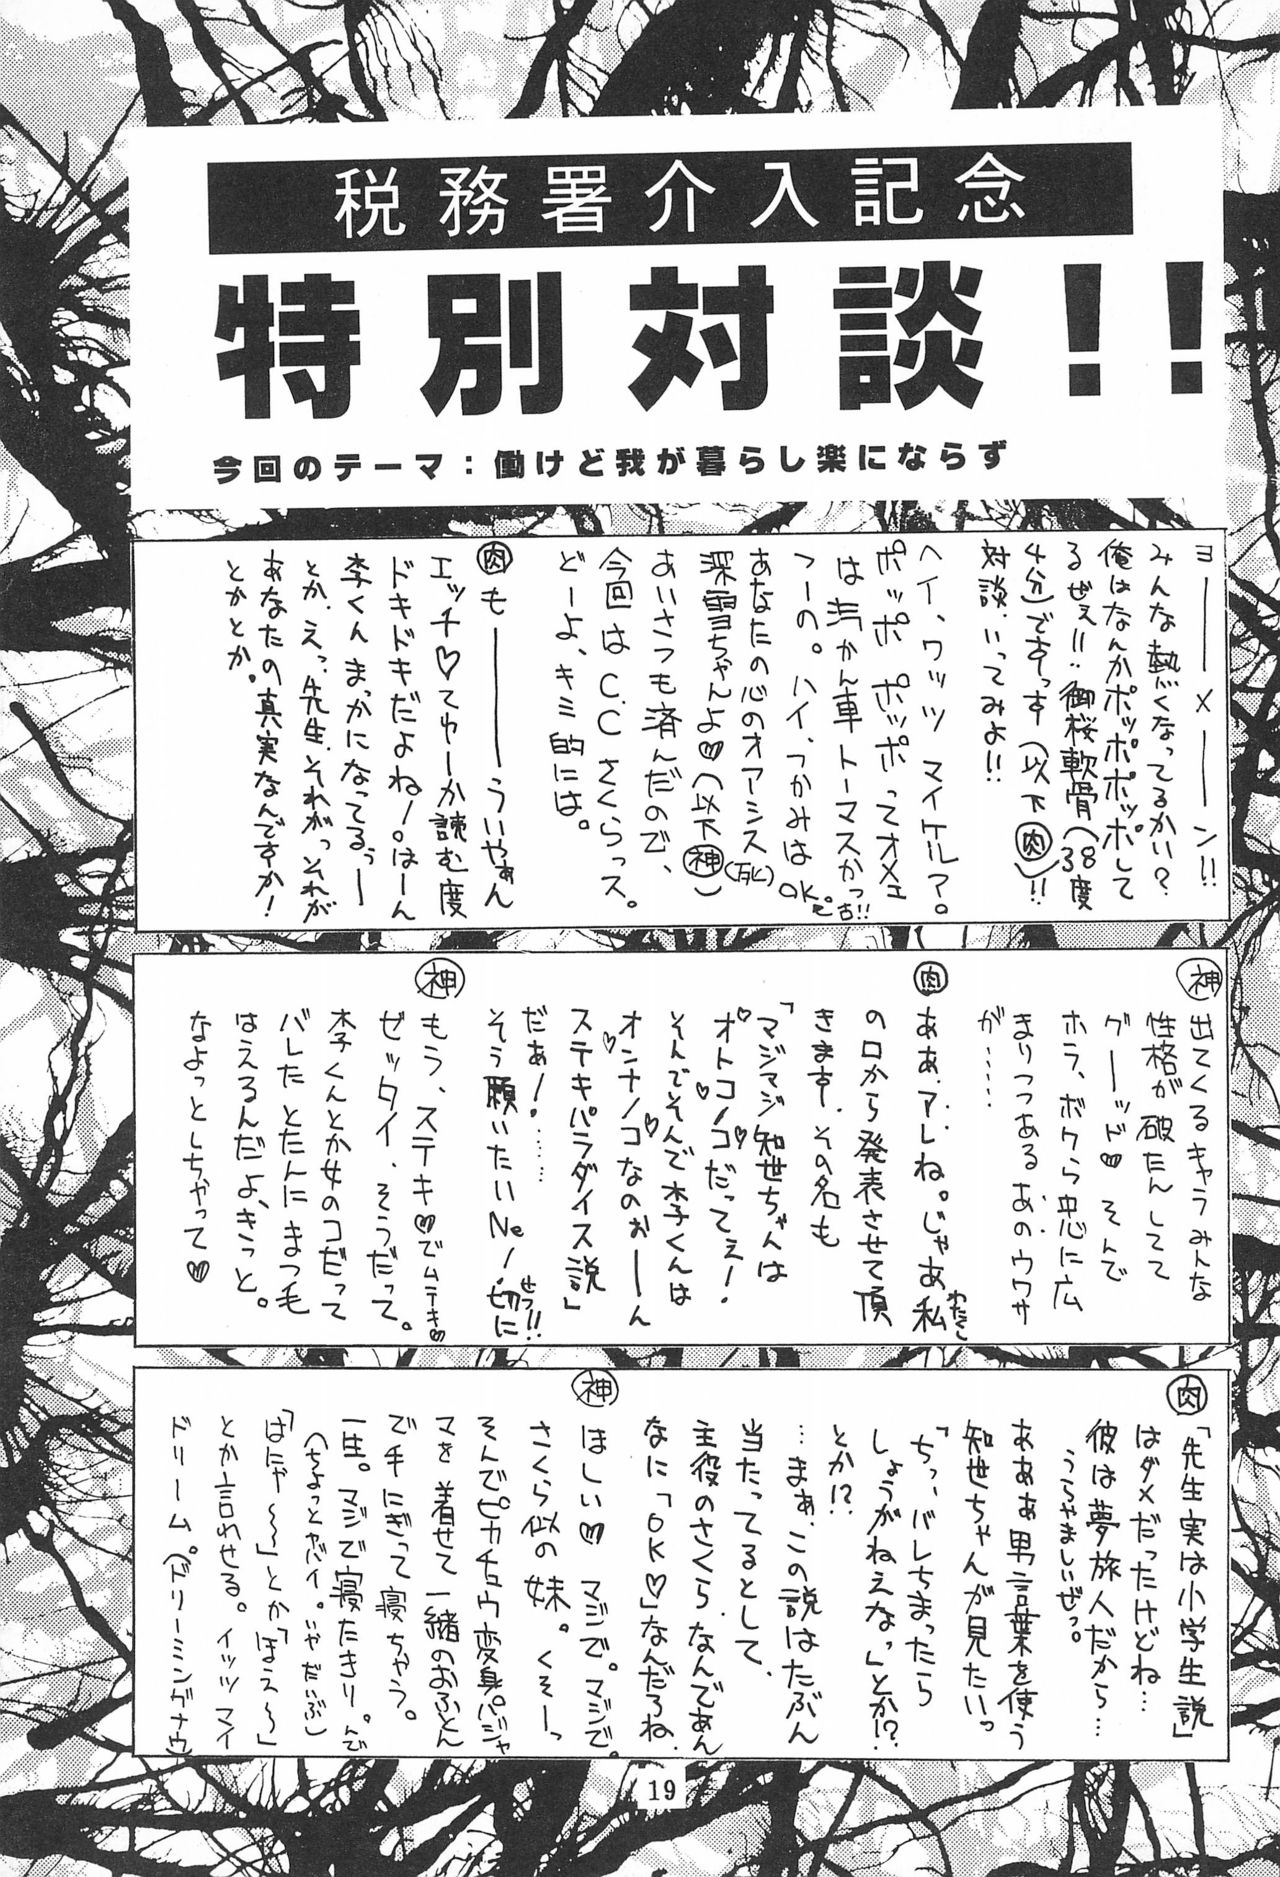 税務署介入記念
特別対談!!
今回のテーマ:働けど我が暮らし楽にならず
ヨーーメーーン!!
みんな熱くなってるかい?
俺はなんかポッポポッポして
るぜぇ!!:御桜軟骨(38度
4分)ですっす(以下㊅肉)!!
対談、いってみよ!!
ヘイ、ワッツ マイケル?。
ポッポ ポッポってオメェ
は汽かん車トーマスかっ
つーの。ハイ、つかみはOK。
あなたの心のオアシス(死)
深雪ちゃんよ♡(以下神)
あいさつも済んだので、
今回はC.Cさくらっス。
どーよ、キミ的には。
肉 もーーーういやぁん
エッチ♡てゆーか読む度
ドキドキだよね!。はーん
李くんまっかになってるぅー
とか、えっ、先生、それがっそれが
あなたの真実なんですか!
とかとか。
神 出てくるキャラみんな
性格が破たんしてて
グーーッド♡そんで
ホラ、ボクら忠に広
まりつつあるあのウワサ
が……
肉 ああ、アレね。じゃあ私わたくし
の口から発表させて頂
きます、その名も
「マジマジ知世ちゃんは
オトコノコだってぇ!
そんでそんで李くんは
オンナノコなのぉーーん
ステキパラダイス説」
だぁ!……
そう願いたいNe!切にせつ!!
神 もう、ステキ♡でムテキ♡
ゼッタイ、そうだって。
李くんとか女のコだって
バレたとたんにまつ毛
はえるんだよ、きっと。
なよっとしちゃって♡
肉 「先生実は小学生説」
はダメだったけどね…
彼は夢旅人だから…
うらやましいぜっ。
あああ男言葉を使う
知世ちゃんが見たいっ
「ちっ、バレちまったら
しょうがねえなっ」とか!?
とか!?
…まぁ、この説はたぶん
当たってるとして、
主役のさくらなんであん
なに「OK♡」なんだろね
神 ほしい♡マジで。マジで。
さくら似の妹。くそーっ
そんでピカチュウ変身パジャ
マを着せて一緒のおふとん
で手にぎって寝ちゃう。
一生。マジで寝たきり。んで
(ちょっとヤバイ。いやだいぶ)
「はにゃ〜〜」とか「ほえ〜〜」
とか言わせる。イッツマイ
ドリーム。(ドリーミングナウ)
19